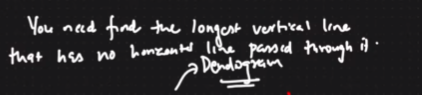 You need find the longest vertical line
that has no horizontal line passed through it.
Dendogram